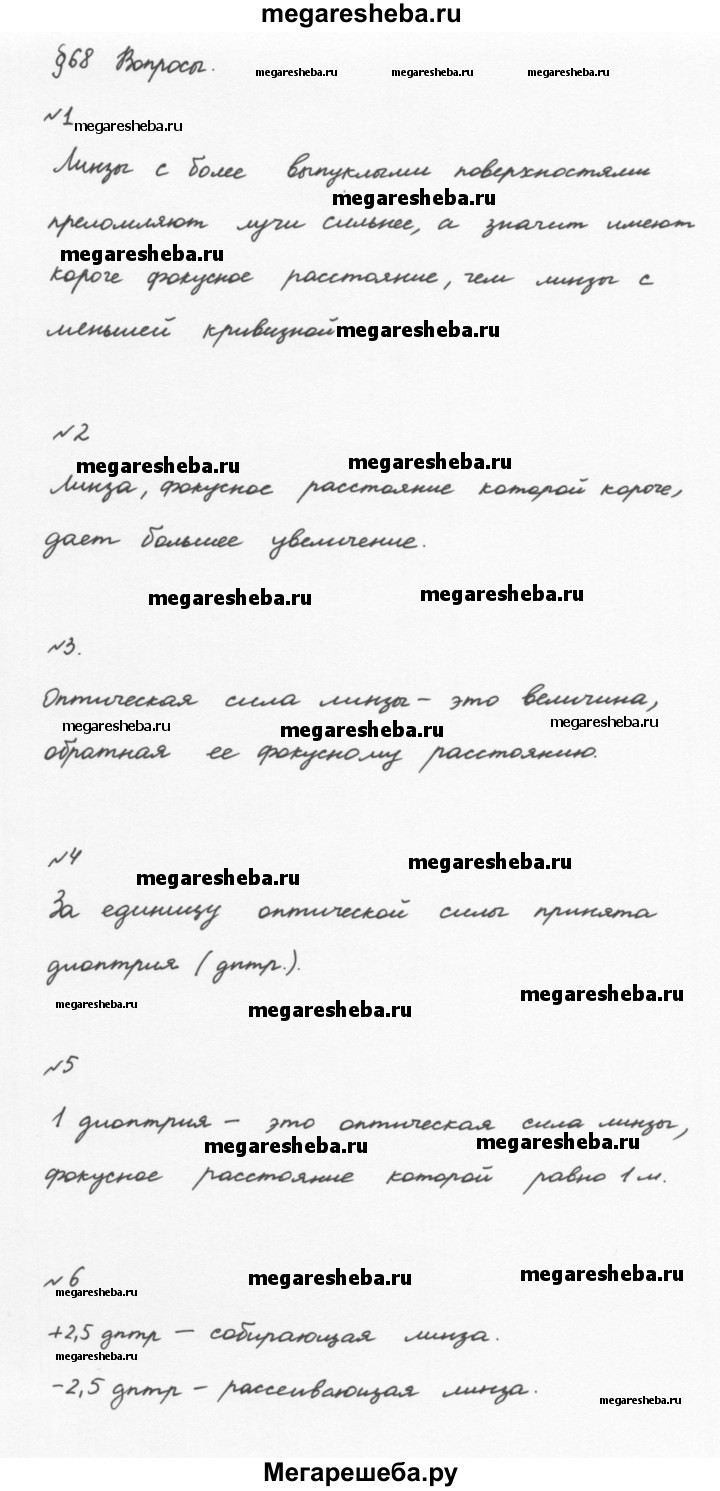 megaresheba.ru
§68 Вопросы.
megaresheba.ru megaresheba.ru megaresheba.ru
№1 megaresheba.ru
Линзы с более выпуклыми поверхностями
megaresheba.ru
преломляют лучи сильнее, а значит имеют
megaresheba.ru
короче фокусное расстояние, чем линзы с
меньшей кривизной megaresheba.ru
№2
megaresheba.ru megaresheba.ru
Линза, фокусное расстояние которой короче,
дает большее увеличение.
megaresheba.ru megaresheba.ru
№3.
Оптическая сила линзы - это величина,
megaresheba.ru megaresheba.ru megaresheba.ru
обратная ее фокусному расстоянию.
№4
megaresheba.ru megaresheba.ru
За единицу оптической силы принята
диоптрия (дптр.).
megaresheba.ru megaresheba.ru megaresheba.ru
№5
1 диоптрия - это оптическая сила линзы,
megaresheba.ru megaresheba.ru
фокусное расстояние которой равно 1 м.
№6
megaresheba.ru megaresheba.ru megaresheba.ru
+2,5 дптр - собирающая линза.
megaresheba.ru
-2,5 дптр - рассеивающая линза.
megaresheba.ru
Мегарешеба.ру